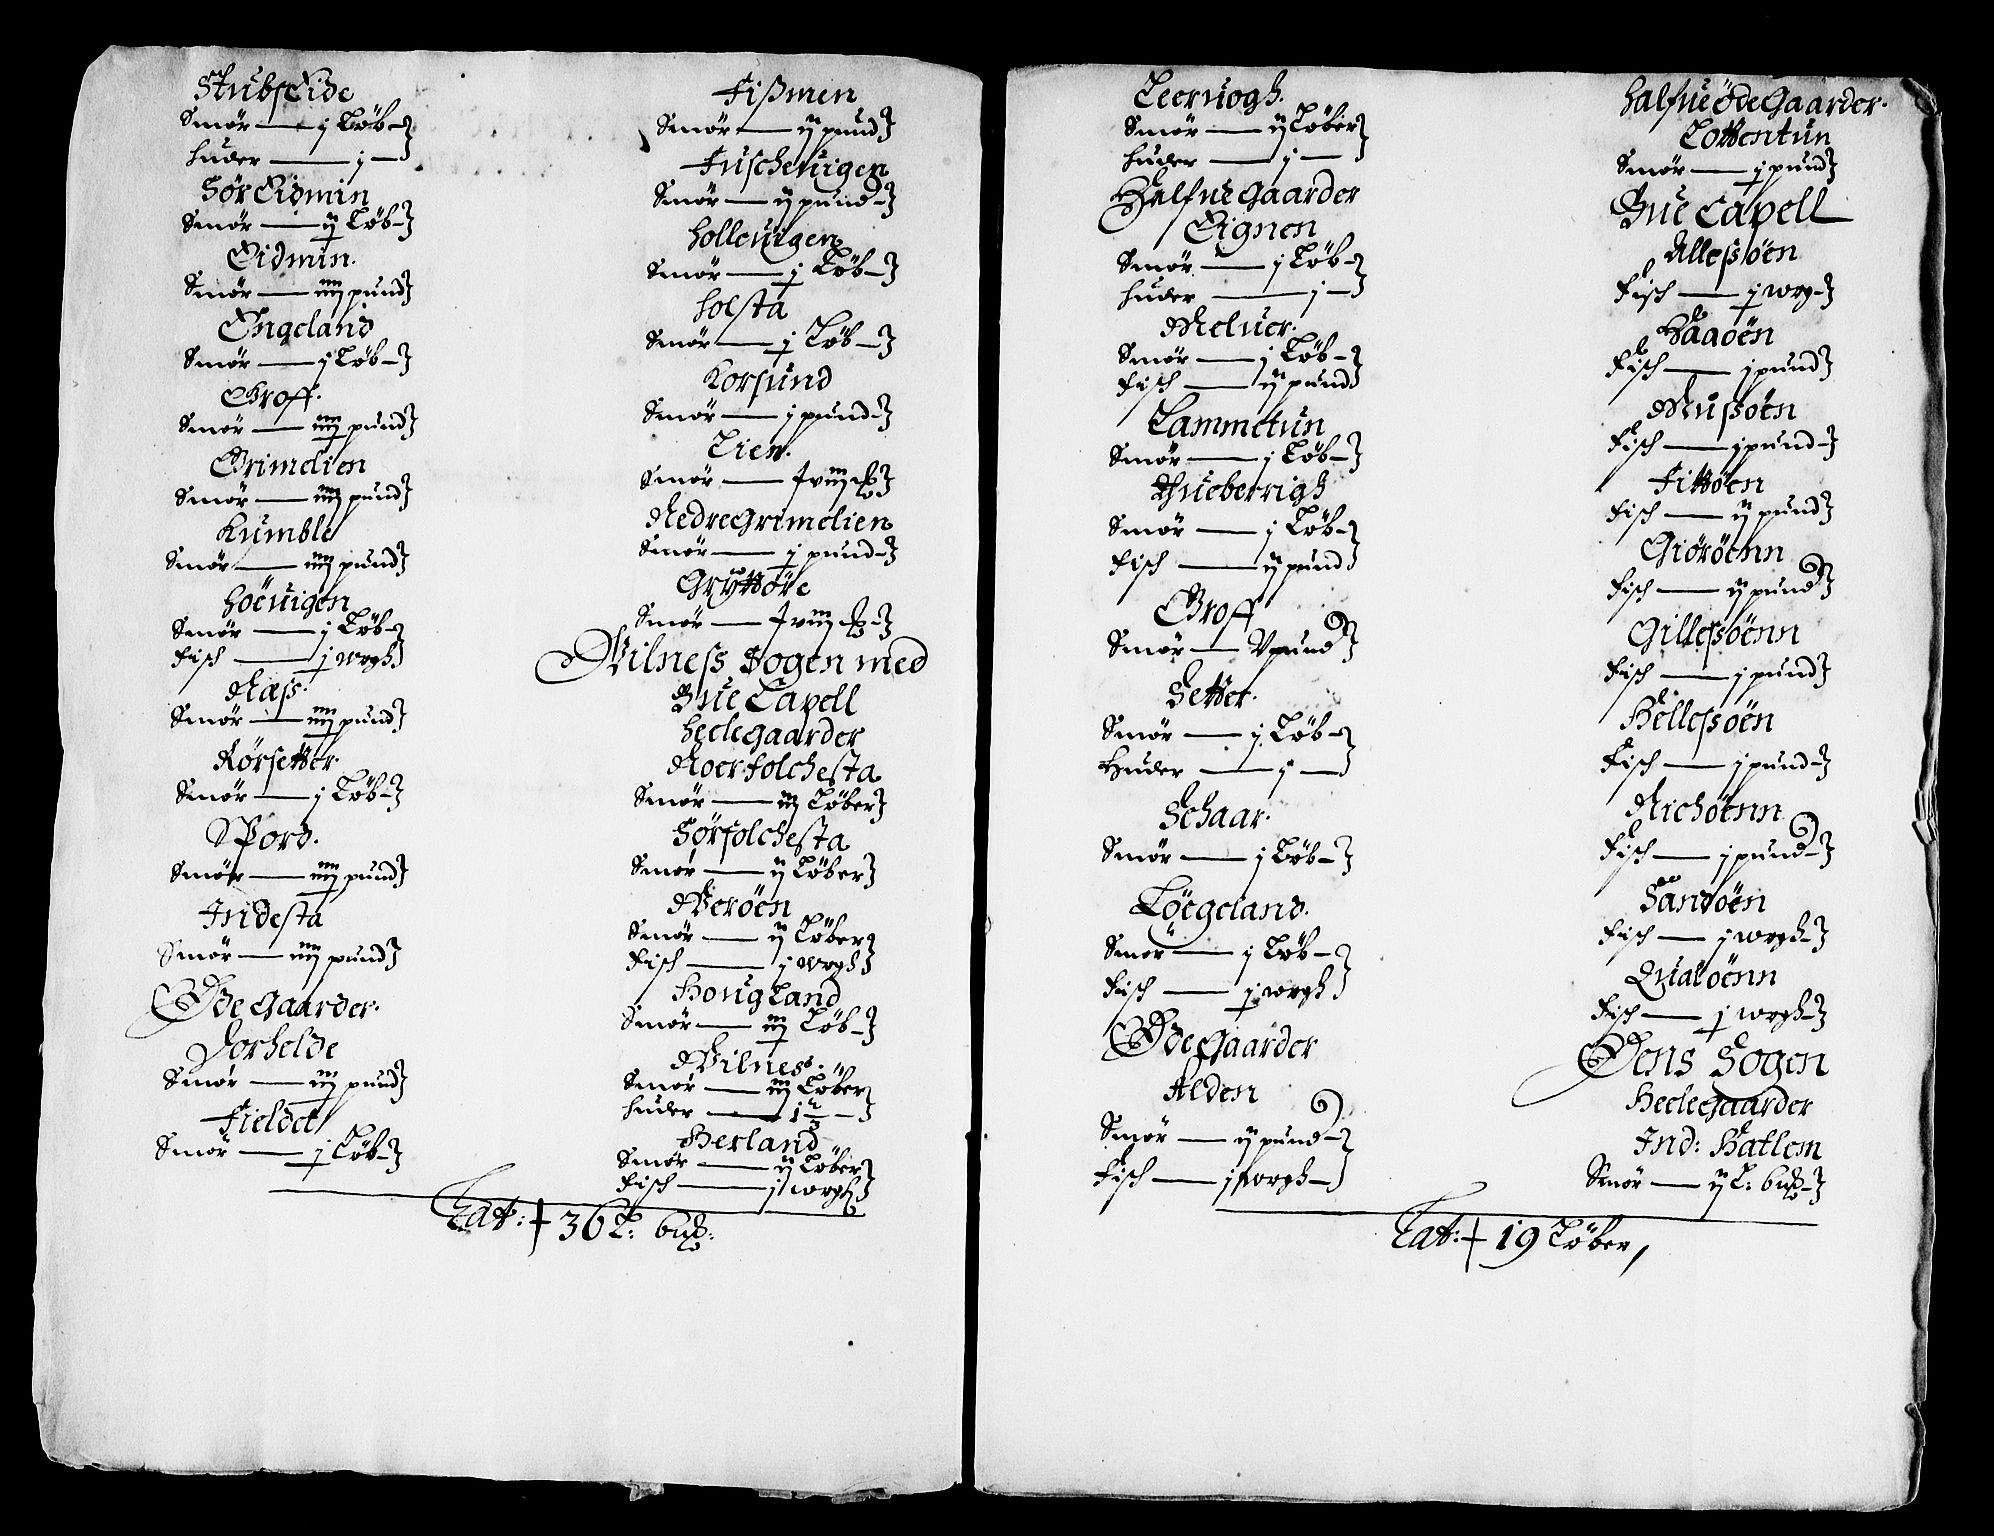 StubsEide
Smör — j Löb
huder — j —
Sör Eidmin
Smör — ij Löb
Eidmin.
Smör — iiij pund
Engeland
Smör — j Löb
Groff.
Smör — iiij pund
Grimelien
Smör — iiij pund
Kumble
Smör — iiij pund
höeuigen
Smör — j Löb
Fisch — j wogh
Næss.
Smör — iiij pund
Rörsetter.
Smör — j Löb
Spord.
Smör — iiij pund
Indesta
Smör — iiij pund
Øde Gaarder.
Jorhelde
Smör — iij pund
Fieldet
Smör — j Löb
Fißmen
Smör — ij pund
Fuscheuigen
Smör — ij pund
holleuigen
Smör — j Löb
holsta
Smör — j Löb
Korsund
Smör — j pund
Lien.
Smör —
Nedre Grimelien
Smör — j pund
Gryttöre
Smör —
Wilness Sogen med
Bue Capell
heele Gaarder
Noer folchesta
Smör — iij Löber
Sörfolchesta
Smör — ij Löber
Weröen
Smör — ij Löber
Fisch — j wogh
Hougland
Smör — iij Löb
Wilness.
Smör — iij Löber
huder —
Herland
Smör — ij Löber
Fisch — j wogh
Lat: 36 L: bud:
Leeruogh.
Smör — ij Löber
huder — j —
Halfue Gaarder
Eignen
Smör — j Löb
huder — j —
Meluer.
Smör — j Löb
Fisch — ij pund
Lammetun
Smör — j Löb
Thueberrigh
Smör — j Löb
Fisch — ij pund
Groff
Smör — V pund
Setter.
Smör — j Löb
Huder — j —
Schaar.
Smör — j Löb
Löegeland.
Smör — j Löb
Fisch — j wogh
Øde Gaarder
Alden
Smör — ij pund
Fisch — j worgh
halfue öde Gaarder.
Lottentun
Smör — j pund
Bue Capell
Allessöen
Fisch — j wog
Haaöen
Fisch — j pund
Mussöen
Fisch — j pund
Fittöen
Fisch — ij pund
Giöröenn
Fisch — ij pund
Gillessöenn
Fisch — j pund
Hellessöen
Fisch — j pund
Richöenn
Fisch — j pund
Sandöen
Fisch — j wogh
Qualöenn
Fisch — j wogh
Jens Sogen
Heele Gaarder
Ind: Hatlem
Smör — ij L: bud
Lat: 19 Löber,